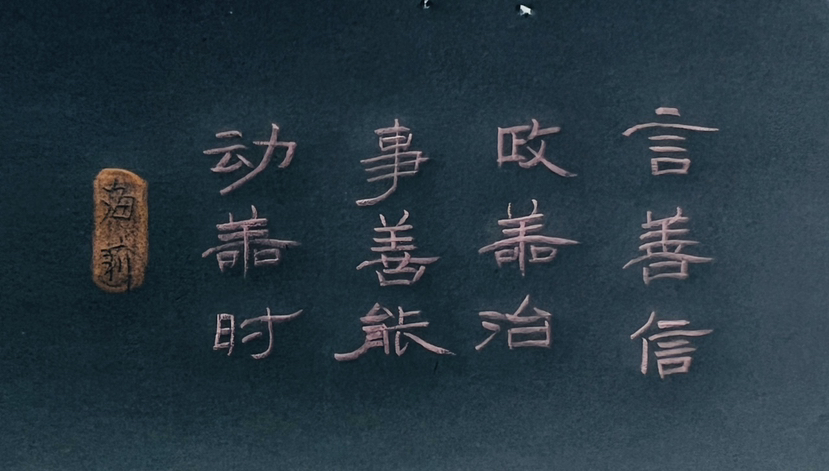 言善信
政善治
事善能
动善时
海莉